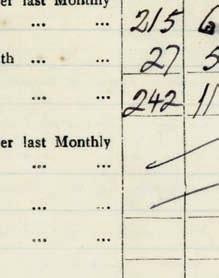 er last Monthly
... ... 215 6
th ... ... 27 5
... ... 242 11
er last Monthly
... ...
... ...
... ...